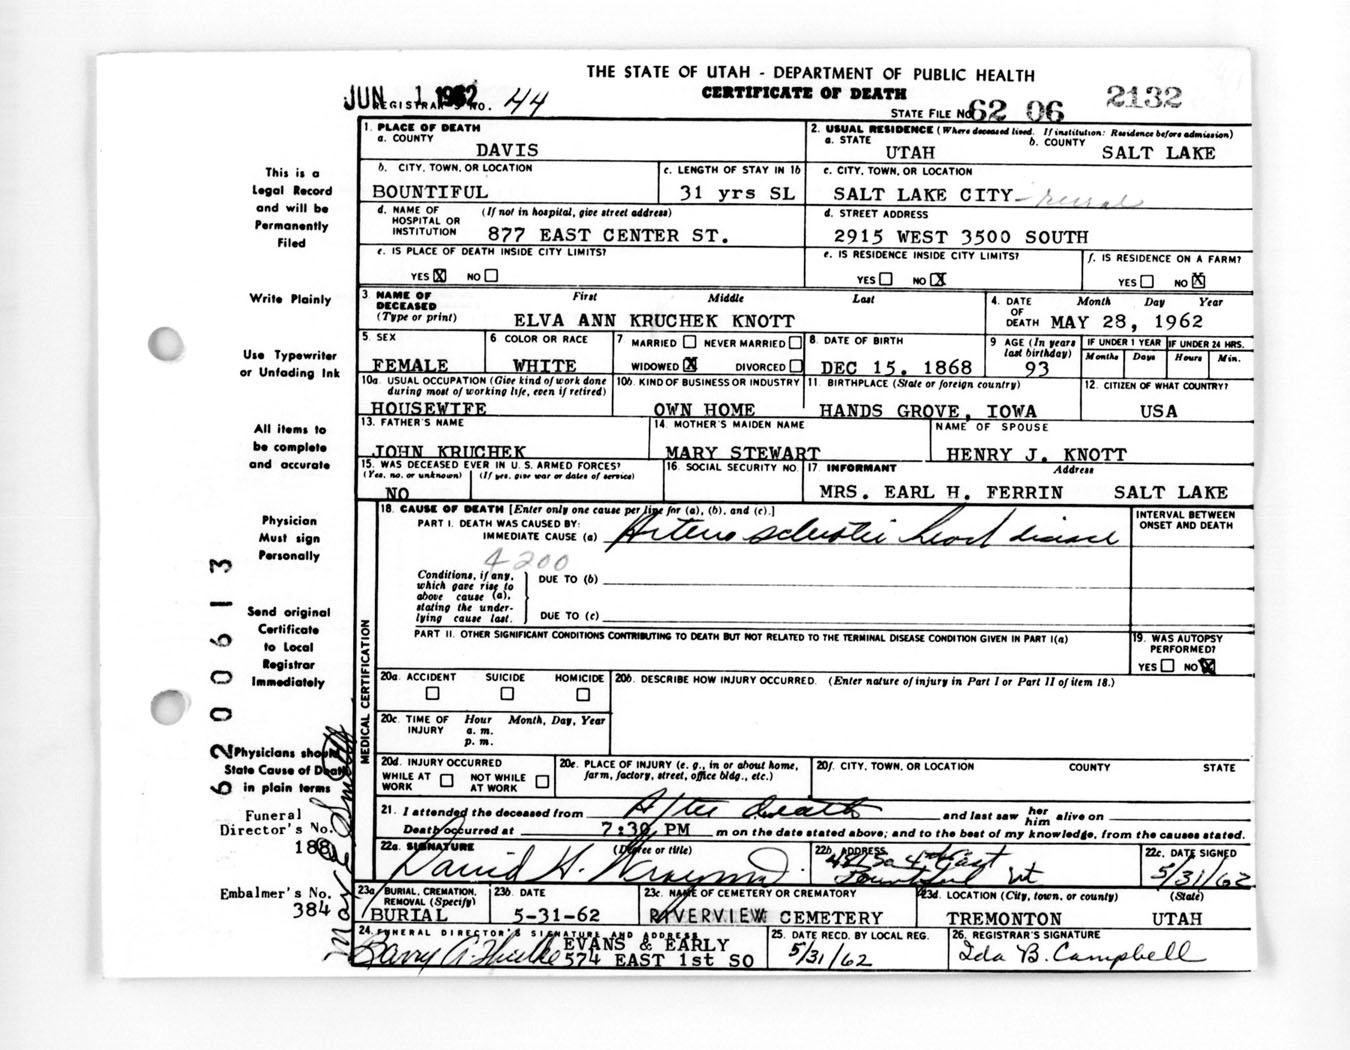 THE STATE OF UTAH - DEPARTMENT OF PUBLIC HEALTH
CERTIFICATE OF DEATH
JUN 1 1962
REGISTRAR'S NO. 44
STATE FILE NO. 62 06 2132
This is a
Legal Record
and will be
Permanently
Filed
Write Plainly
Use Typewriter
or Unfading Ink
All items to
be complete
and accurate
Physician
Must sign
Personally
Send original
Certificate
to Local
Registrar
Immediately
Physicians should
State Cause of Death
in plain terms
Funeral
Director's No.
188
Embalmer's No.
384
62 00613
1. PLACE OF DEATH
a. COUNTY
DAVIS
2. USUAL RESIDENCE (Where deceased lived. If institution: Residence before admission)
a. STATE UTAH
b. COUNTY SALT LAKE
b. CITY, TOWN, OR LOCATION
BOUNTIFUL
c. LENGTH OF STAY IN 1b
31 yrs SL
c. CITY, TOWN, OR LOCATION
SALT LAKE CITY - rural
d. NAME OF HOSPITAL OR INSTITUTION (If not in hospital, give street address)
877 EAST CENTER ST.
d. STREET ADDRESS
2915 WEST 3500 SOUTH
e. IS PLACE OF DEATH INSIDE CITY LIMITS?
YES X NO
e. IS RESIDENCE INSIDE CITY LIMITS?
YES NO X
f. IS RESIDENCE ON A FARM?
YES NO X
3. NAME OF DECEASED (Type or print)
First Middle Last
ELVA ANN KRUCHEK KNOTT
4. DATE OF DEATH Month Day Year
MAY 28, 1962
5. SEX
FEMALE
6 COLOR OR RACE
WHITE
7 MARRIED NEVER MARRIED
WIDOWED X DIVORCED
8. DATE OF BIRTH
DEC 15. 1868
9 AGE (In years last birthday)
93
IF UNDER 1 YEAR
Months Days
IF UNDER 24 HRS.
Hours Min.
10a. USUAL OCCUPATION (Give kind of work done during most of working life, even if retired)
HOUSEWIFE
10b. KIND OF BUSINESS OR INDUSTRY
OWN HOME
11. BIRTHPLACE (State or foreign country)
HANDS GROVE, IOWA
12. CITIZEN OF WHAT COUNTRY?
USA
13. FATHER'S NAME
JOHN KRUCHEK
14. MOTHER'S MAIDEN NAME
MARY STEWART
NAME OF SPOUSE
HENRY J. KNOTT
15. WAS DECEASED EVER IN U.S. ARMED FORCES?
(Yes, no, or unknown) (If yes, give war or dates of service)
NO
16. SOCIAL SECURITY NO.
17. INFORMANT Address
MRS. EARL H. FERRIN SALT LAKE
MEDICAL CERTIFICATION
18. CAUSE OF DEATH [Enter only one cause per line for (a), (b), and (c).]
PART I. DEATH WAS CAUSED BY:
IMMEDIATE CAUSE (a) Arterio sclerotic heart disease
INTERVAL BETWEEN ONSET AND DEATH
4200
Conditions, if any, which gave rise to above cause (a), stating the underlying cause last.
DUE TO (b)
DUE TO (c)
PART II. OTHER SIGNIFICANT CONDITIONS CONTRIBUTING TO DEATH BUT NOT RELATED TO THE TERMINAL DISEASE CONDITION GIVEN IN PART I(a)
19. WAS AUTOPSY PERFORMED?
YES NO X
20a. ACCIDENT SUICIDE HOMICIDE
20b. DESCRIBE HOW INJURY OCCURRED. (Enter nature of injury in Part I or Part II of item 18.)
20c. TIME OF INJURY Hour Month, Day, Year
a. m.
p. m.
20d. INJURY OCCURRED
WHILE AT WORK NOT WHILE AT WORK
20e. PLACE OF INJURY (e. g., in or about home, farm, factory, street, office bldg., etc.)
20f. CITY, TOWN, OR LOCATION COUNTY STATE
21. I attended the deceased from After death and last saw her him alive on
Death occurred at 7:30 PM m on the date stated above; and to the best of my knowledge, from the causes stated.
22a. SIGNATURE (Degree or title)
David H.
22b. ADDRESS
22c. DATE SIGNED
5/31/62
23a BURIAL, CREMATION, REMOVAL (Specify)
BURIAL
23b. DATE
5-31-62
23c. NAME OF CEMETERY OR CREMATORY
RIVERVIEW CEMETERY
23d. LOCATION (City, town, or county) (State)
TREMONTON UTAH
24. FUNERAL DIRECTOR'S SIGNATURE AND ADDRESS
EVANS & EARLY
574 EAST 1st SO
25. DATE RECD. BY LOCAL REG.
5/31/62
26. REGISTRAR'S SIGNATURE
Ida B. Campbell